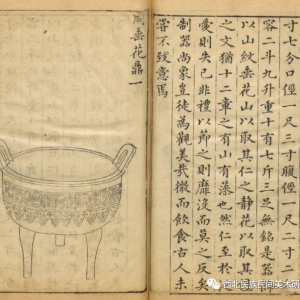 寸七分口徑一尺三寸腹徑一尺二寸二
容二斗九升重十有七斤三足無銘是器
以山紋垂花山以取其仁之靜花以取其
之文猶十二章之有山有藻也然仁至於
愛則失已非禮以節之則靡沒而莫之反
制器尚象豈徒為觀美哉微而飲食古人未
嘗不致意焉
周垂花鼎一
西北民族民间美术研